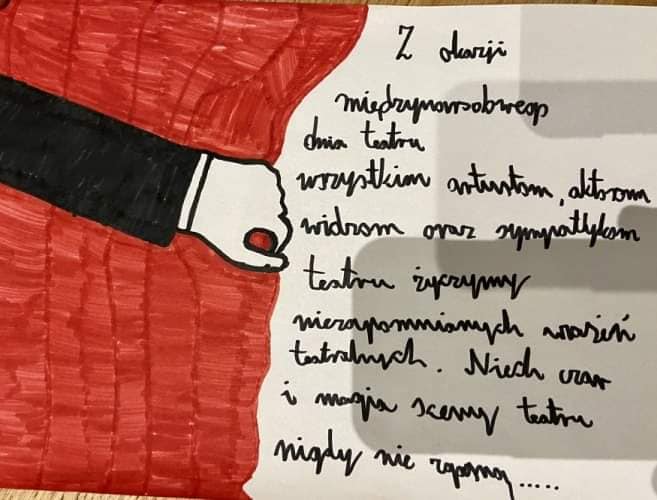 Z okazji
międzynarodowego
dnia teatru
wszystkim artystom, aktorom
widzom oraz sympatykom
teatru życzymy
niezapomnianych wrażeń
teatralnych. Niech czar
i magia sceny teatru
nigdy nie zgasną.....